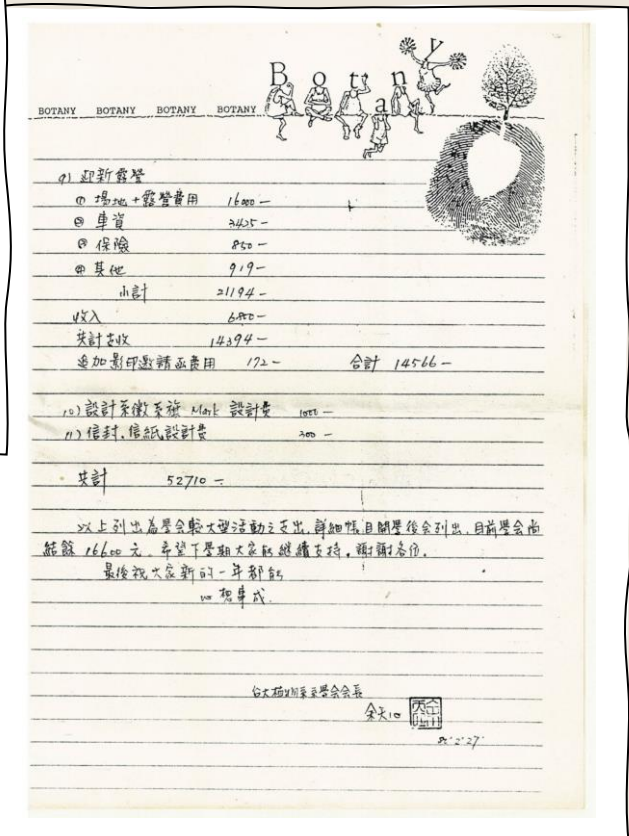 Botany
BOTANY BOTANY BOTANY BOTANY
9) 迎新露營
① 場地+露營費用 16000-
② 車資 3425-
③ 保險 850-
④ 其他 919-
小計 21194-
收入 6800-
共計支收 14394-
追加影印邀請函費用 172- 合計 14566-
10) 設計系徽系旗 Mark 設計費 1000-
11) 信封.信紙設計費 300-
共計 52710-
以上列出為學会較大型活動之支出,詳細帳目開學後会列出,目前學会尚
結餘 16600 元,希望下學期大家能繼續支持。謝謝各位。
最後祝大家新的一年都能
心想事成.
台大植物系系學会会長
余天心
2 27